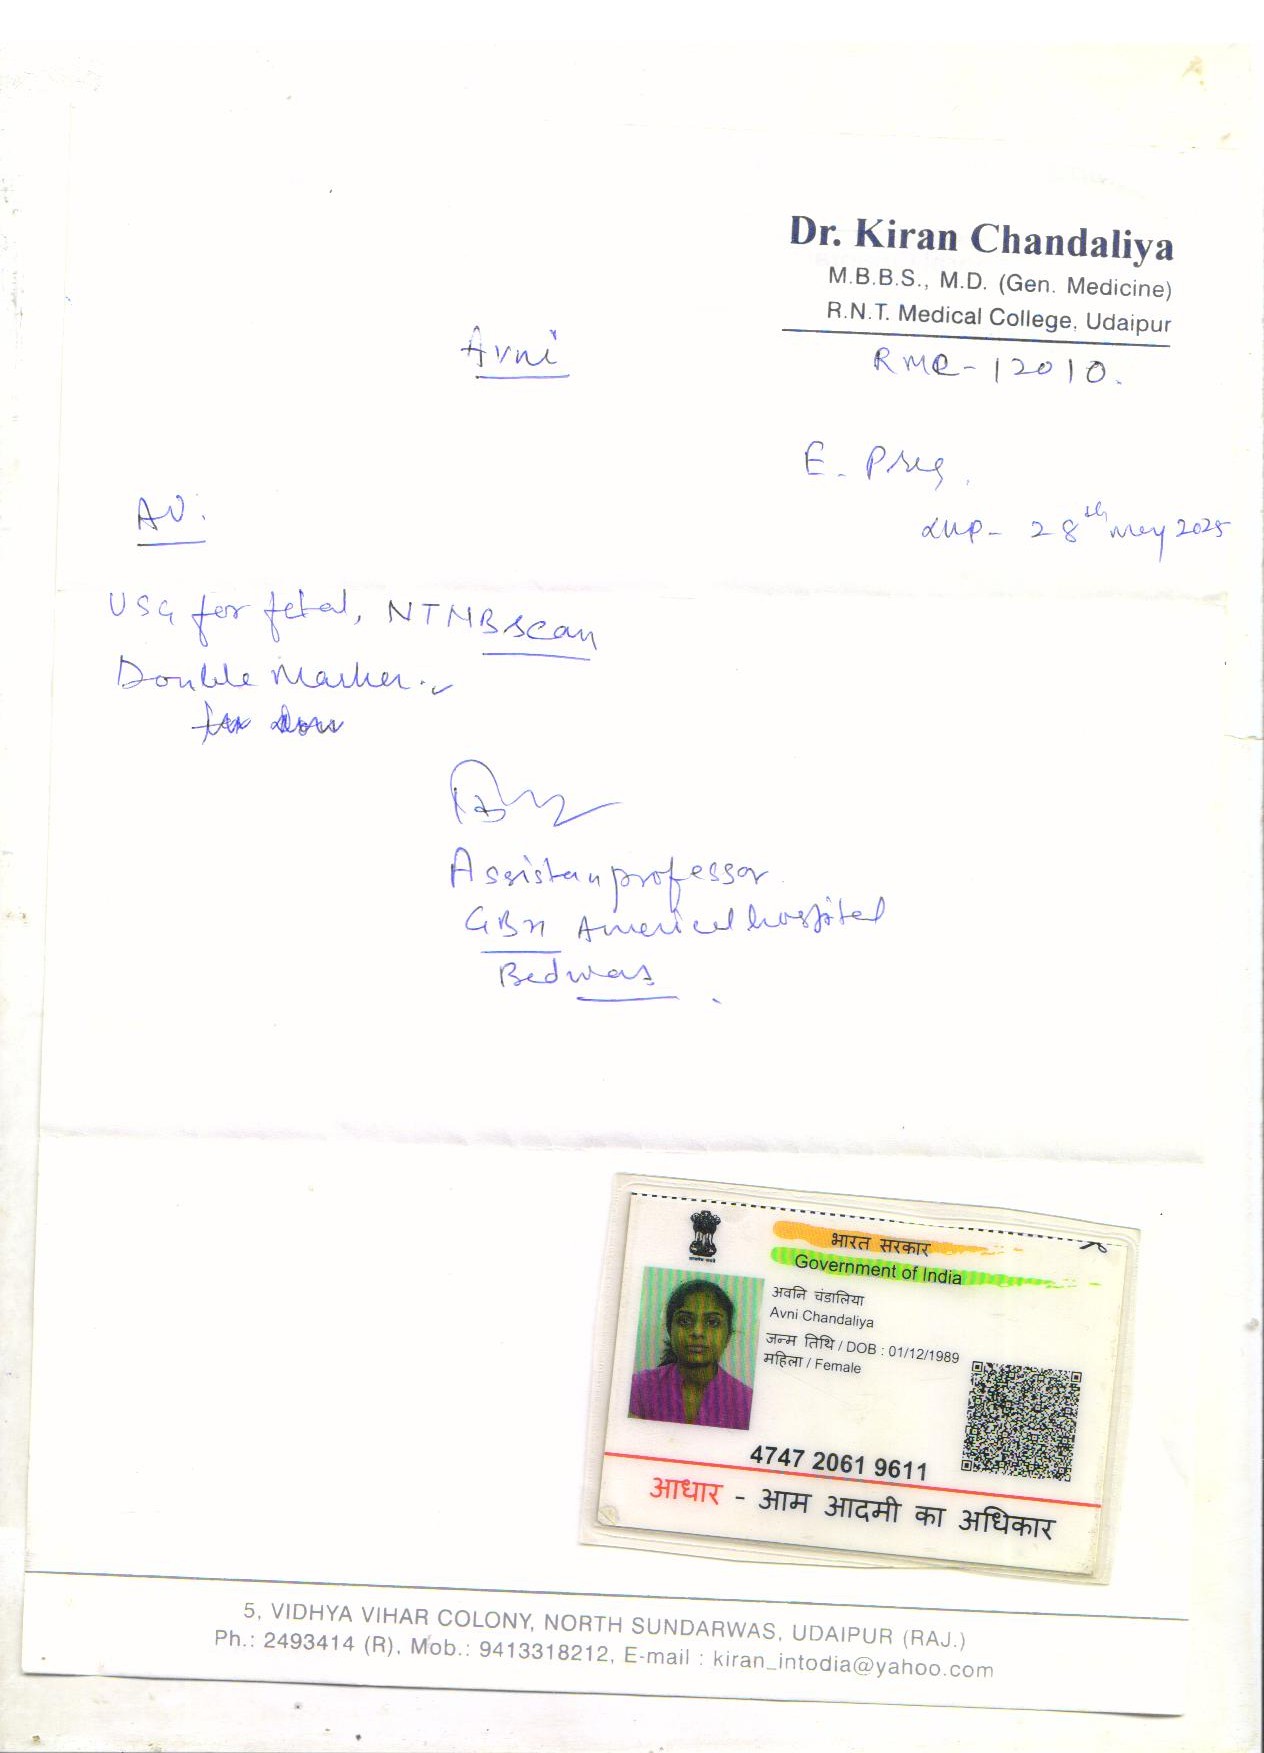 Dr. Kiran Chandaliya
M.B.B.S., M.D. (Gen. Medicine)
R.N.T. Medical College, Udaipur
RMC - 12010.
Avni
E. Preg.
LMP - 28th May 2025
AD.
USG for fetal, NTNB scan
Double Marker.
Assistan professor
GBH American hospital
Bedwas
भारत सरकार
Government of India
अवनि चंडालिया
Avni Chandaliya
जन्म तिथि / DOB : 01/12/1989
महिला / Female
4747 2061 9611
आधार - आम आदमी का अधिकार
5, VIDHYA VIHAR COLONY, NORTH SUNDARWAS, UDAIPUR (RAJ.)
Ph.: 2493414 (R), Mob.: 9413318212, E-mail : kiran_intodia@yahoo.com